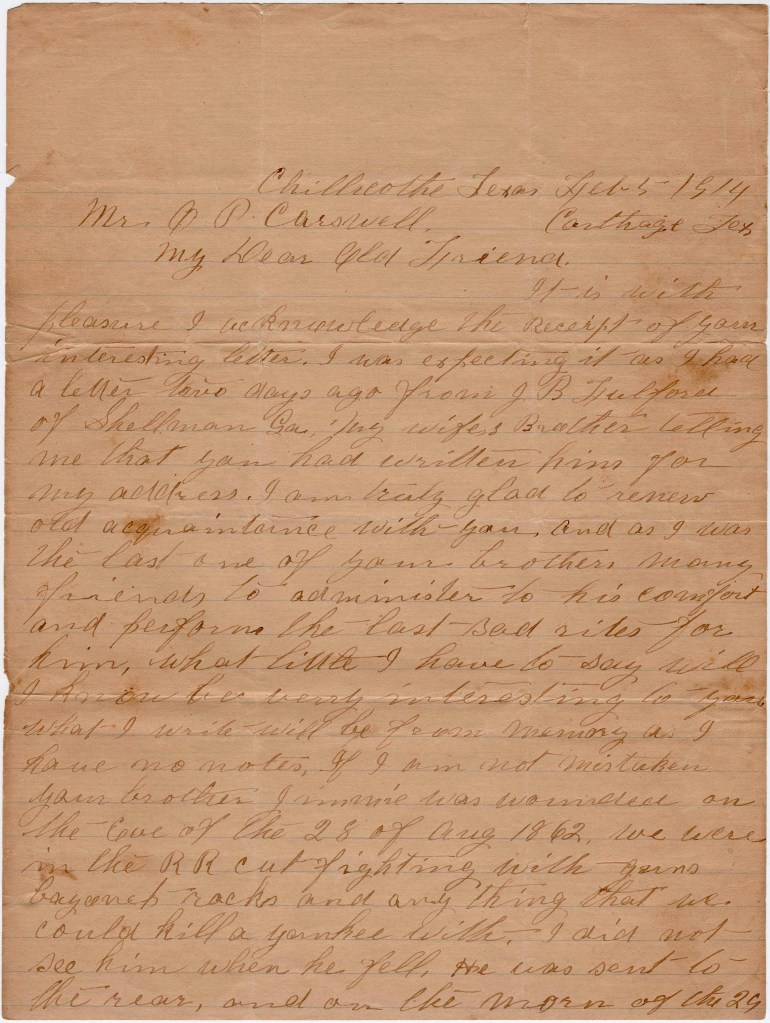 Chillicothe Texas Feb 5 1914
Mr. J P. Carswell, Carthage Tex
My Dear Old Friend.
It is with
pleasure I acknowledge the Receipt of your
interesting letter. I was expecting it as I had
a letter two days ago from J B Fulford
of Shellman Ga, My wifes Brother telling
me that you had written him for
my address. I am truly glad to renew
old acquaintance with you, and as I was
the last one of your brothers many
friends to administer to his comfort
and perform the last sad rites for
him, what little I have to say will
I know be verry interesting to you
what I write will be from memory as I
have no notes, If I am not mistaken
your brother Jimmie was wounded on
the Eve of the 28 of Aug 1862, we were
in the R R cut fighting with guns
bayonets rocks and any thing that we
could kill a yankee with. I did not
see him when he fell, He was sent to
the rear, and on the morn of the 29